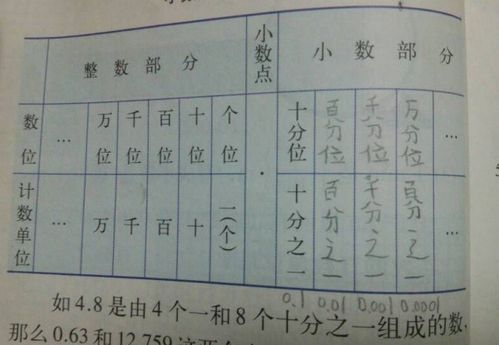 整数部分 小数点 小数部分
数位 … 万位 千位 百位 十位 个位 · 十分位 百分位 千分位 万分位 …
计数单位 … 万 千 百 十 一(个) 十分之一 百分之一 千分之一 百分之一
0.1 0.01 0.001 0.0001
如4.8是由4个一和8个十分之一组成的数,
那么0.63和12.759这两